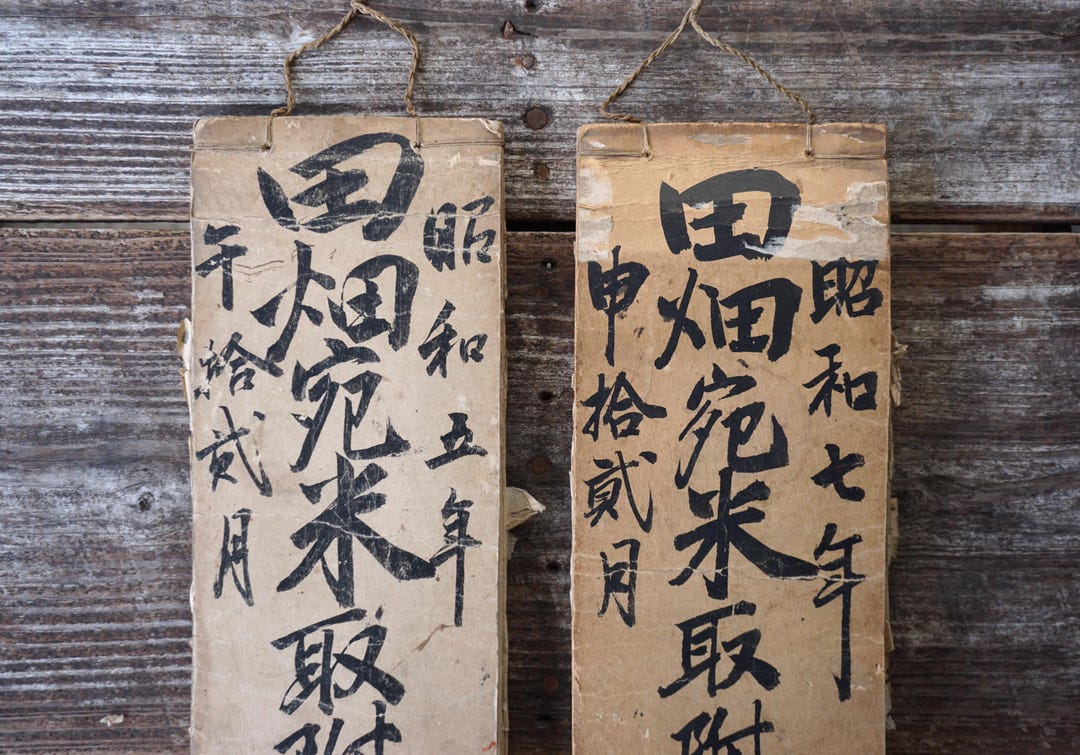 昭和五年
田畑宛米取附
午拾貳月
昭和七年
田畑宛米取附
申拾貳月